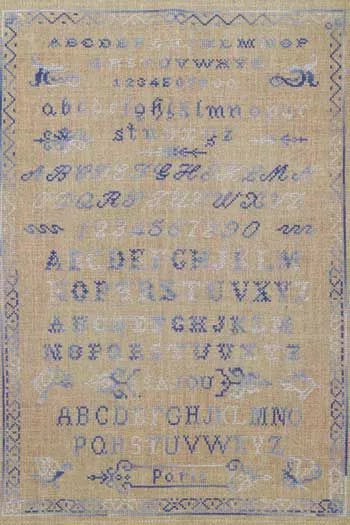 ABCDEFGHIJKLMNOP
QRSTUVWXYZ
1234567890
abcdefghijklmnopqr
stuvwxyz
ABCDEFGHIJKLMN
OPQRSTUVWXYZ
1234567890
ABCDEFGHIJKLM
NOPQRSTUVXYZ
ABCDEFGHIJKLM
NOPQRSTUVXYZ
SAJOU
ABCDEFGHIJKLMNO
PQRSTUVWXYZ
Paris